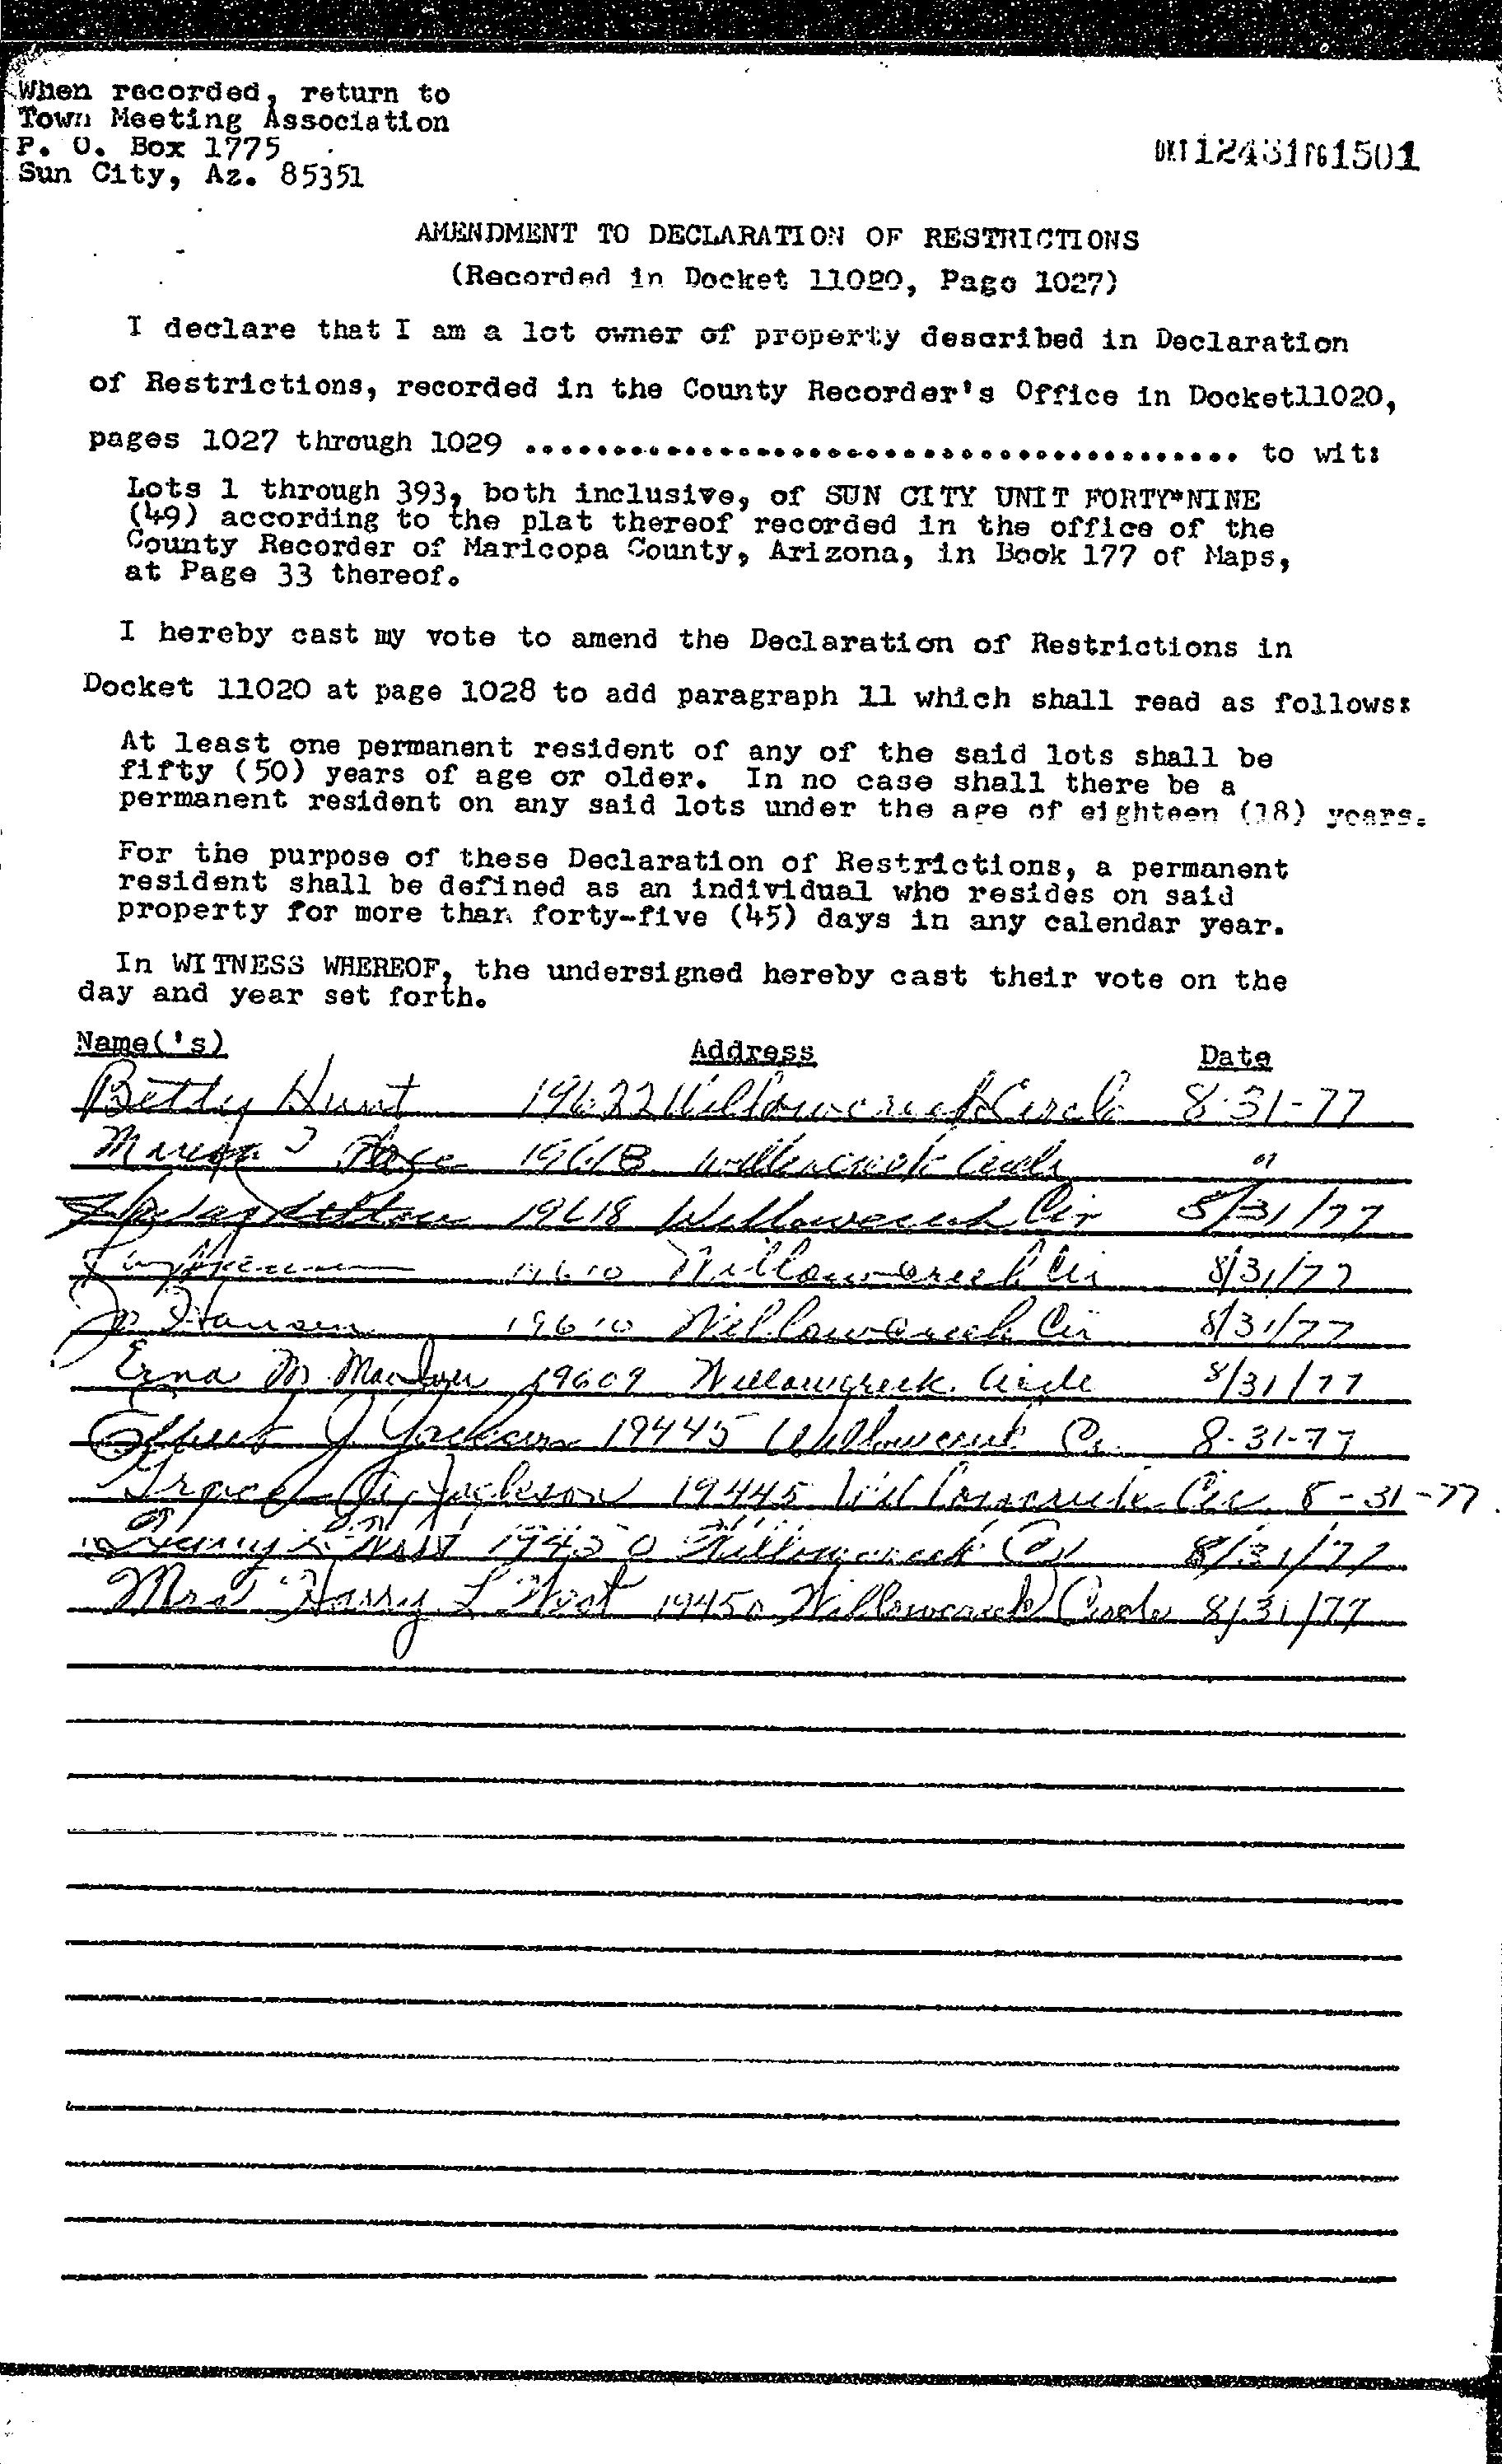 When recorded, return to
Town Meeting Association
P. O. Box 1775
Sun City, Az. 85351
DKT 12431 PG 1501
AMENDMENT TO DECLARATION OF RESTRICTIONS
(Recorded in Docket 11020, Page 1027)
I declare that I am a lot owner of property described in Declaration
of Restrictions, recorded in the County Recorder's Office in Docket11020,
pages 1027 through 1029 ........................................ to wit:
Lots 1 through 393, both inclusive, of SUN CITY UNIT FORTY*NINE
(49) according to the plat thereof recorded in the office of the
County Recorder of Maricopa County, Arizona, in Book 177 of Maps,
at Page 33 thereof.
I hereby cast my vote to amend the Declaration of Restrictions in
Docket 11020 at page 1028 to add paragraph 11 which shall read as follows:
At least one permanent resident of any of the said lots shall be
fifty (50) years of age or older. In no case shall there be a
permanent resident on any said lots under the age of eighteen (18) years.
For the purpose of these Declaration of Restrictions, a permanent
resident shall be defined as an individual who resides on said
property for more than forty-five (45) days in any calendar year.
In WITNESS WHEREOF, the undersigned hereby cast their vote on the
day and year set forth.
Name('s) Address Date
Betty Hunt 19622 Willowcreek Circle 8-31-77
19618 Willowcreek Circle
19618 Willowcreek Cir 8/31/77
19610 Willowcreek Cir 8/31/77
Jo Hansen 19610 Willowcreek Cir 8/31/77
Erna M. 19609 Willowcreek Circle 8/31/77
J. Jackson 19445 Willowcreek Cr. 8-31-77
Grace Jackson 19445 Willowcreek Cir 8-31-77
Harry L. West 19450 Willowcreek Cir 8/31/77
Mrs Harry L West 19450 Willowcreek Circle 8/31/77